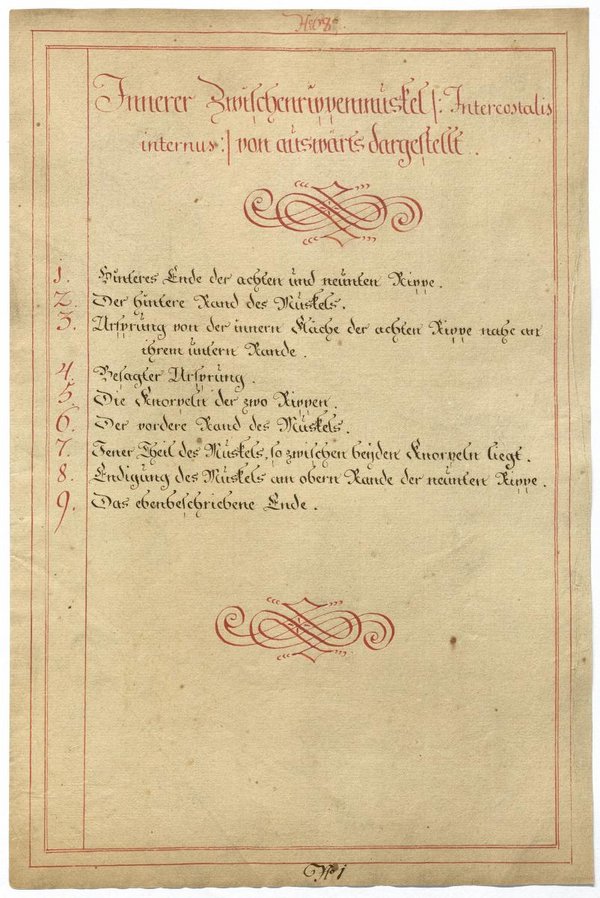 Innerer Zwischenrippenmuskel /: Intercostalis
internus :/ von auswärts dargestellt.
1. Hinteres Ende der achten und neunten Rippe.
2. Der hintere Rand des Muskels.
3. Ursprung von der innern Fläche der achten Rippe nahe an
ihrem untern Rande.
4. Besagter Ursprung.
5. Die Knorpeln der zwo Rippen.
6. Der vordere Rand des Muskels.
7. Jener Theil des Muskels, so zwischen beyden Knorpeln liegt.
8. Endigung des Muskels am obern Rande der neunten Rippe.
9. Das ebenbeschriebene Ende.